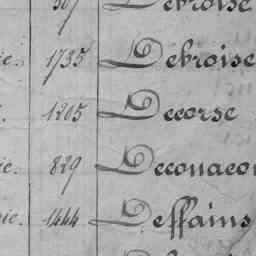 Debroise
ie. 1735 Debroise
1205 Decorse
ie. 829
nie. 1444 Deffains